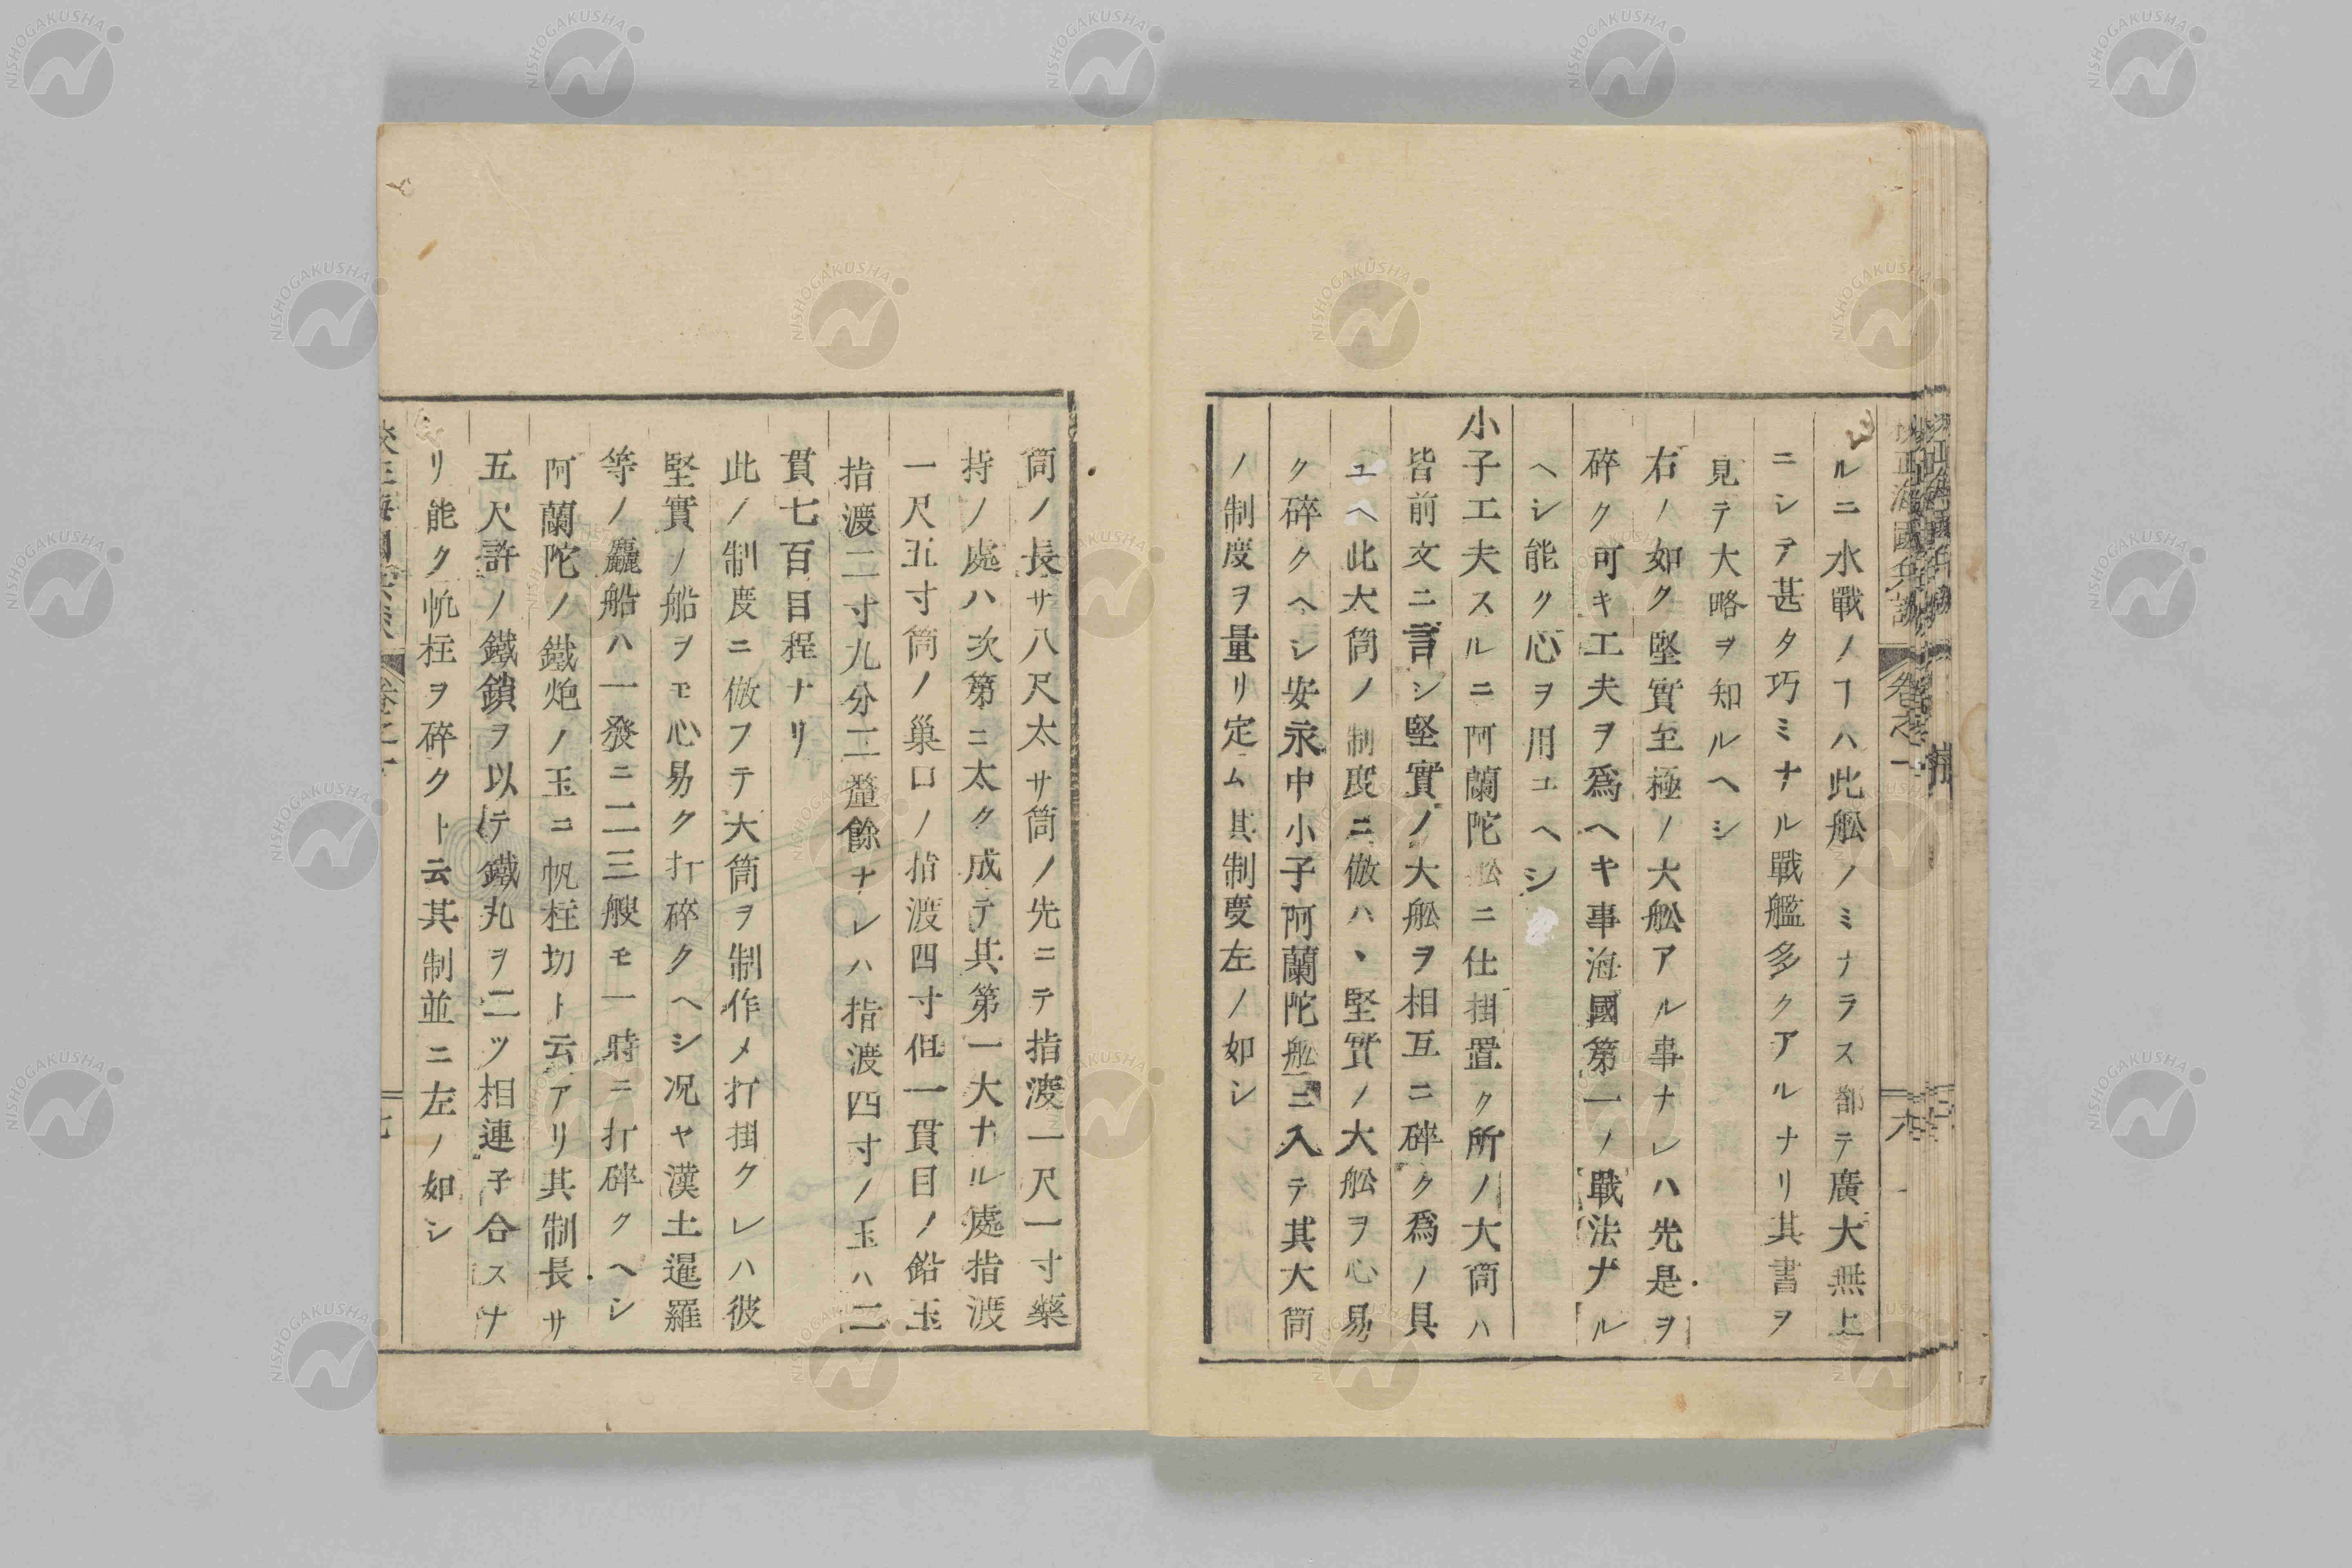 ルニ水戰ノヿハ此舩ノミナラス都テ廣大無上
ニシテ甚タ巧ミナル戰艦多クアルナリ其書ヲ
見テ大略ヲ知ルヘシ
右ノ如ク堅實至極ノ大舩アル事ナレハ先是ヲ
碎ク可キ工夫ヲ爲ヘキ事海國第一ノ戰法ナル
ヘシ能ク心ヲ用ユヘシ
小子工夫スルニ阿蘭陀舩ニ仕掛置ク所ノ大筒ハ
皆前文ニ言シ堅實ノ大舩ヲ相互ニ碎ク爲ノ具
ユヘ此大筒ノ制度ニ倣ハヽ堅實ノ大舩ヲ心易
ク碎クヘシ安永中小子阿蘭陀舩ニ入テ其大筒
ノ制度ヲ量リ定ム其制度左ノ如シ
筒ノ長サ八尺太サ筒ノ先ニテ指渡一尺一寸藥
持ノ處ハ次第ニ太ク成テ其第一大ナル處指渡
一尺五寸筒ノ巢口ノ指渡四寸但一貫目ノ鉛玉
指渡二寸九分二釐餘ナレハ指渡四寸ノ玉ハ二
貫七百目程ナリ
此ノ制度ニ倣フテ大筒ヲ制作メ打掛クレハ彼
堅實ノ船ヲモ心易ク打碎クヘシ况ヤ漢土暹羅
等ノ麤船ハ一發ニ二三艘モ一時ニ打碎クヘシ
阿蘭陀ノ鐵炮ノ玉ニ帆柱切ト云アリ其制長サ
五尺許ノ鐵鎖ヲ以テ鐵丸ヲ二ツ相連子合スナ
リ能ク帆柱ヲ碎クト云其制並ニ左ノ如シ
NISHOGAKUSHA